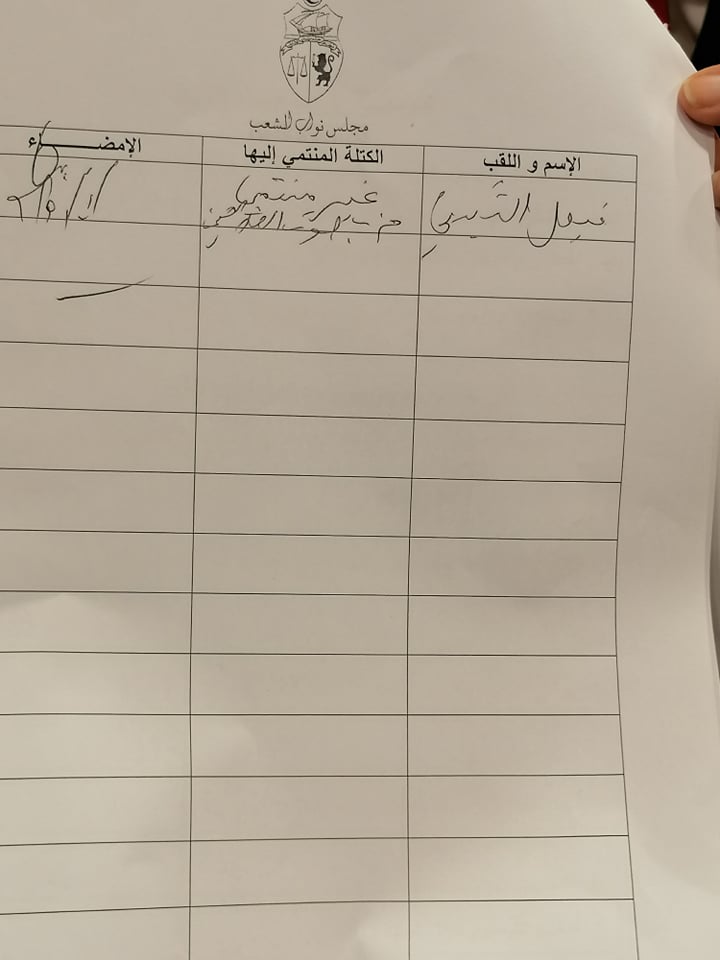 مجلس نواب الشعب
الإسم و اللقب
الكتلة المنتمي إليها
الإمضاء
فيصل التبيني
غير منتمي
حزب صوت الفلاحين